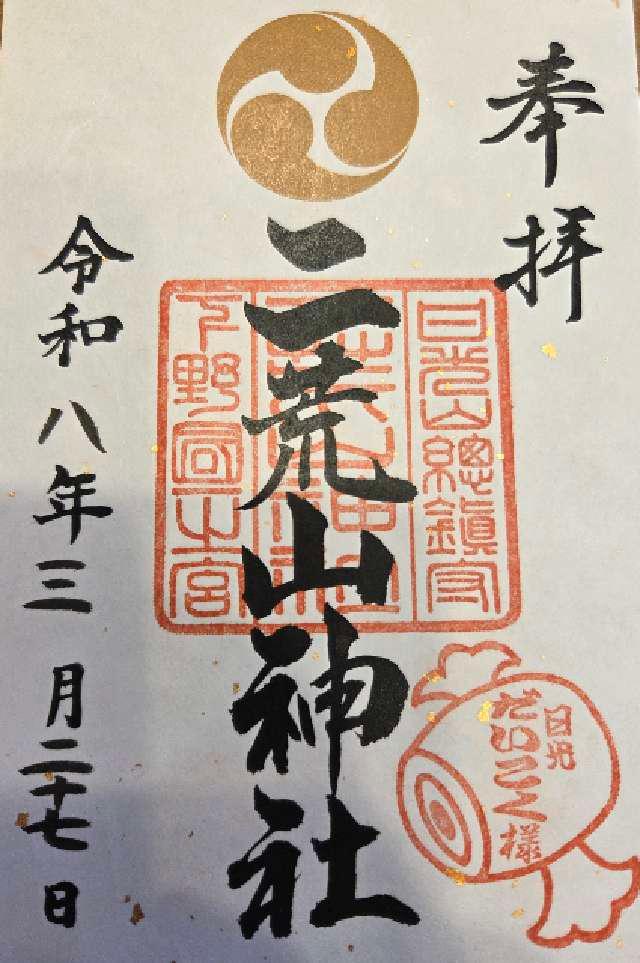 奉拝
日光山總鎮守
二荒山神社
下野國一宮
日光
だいこく様
令和八年三月二十七日